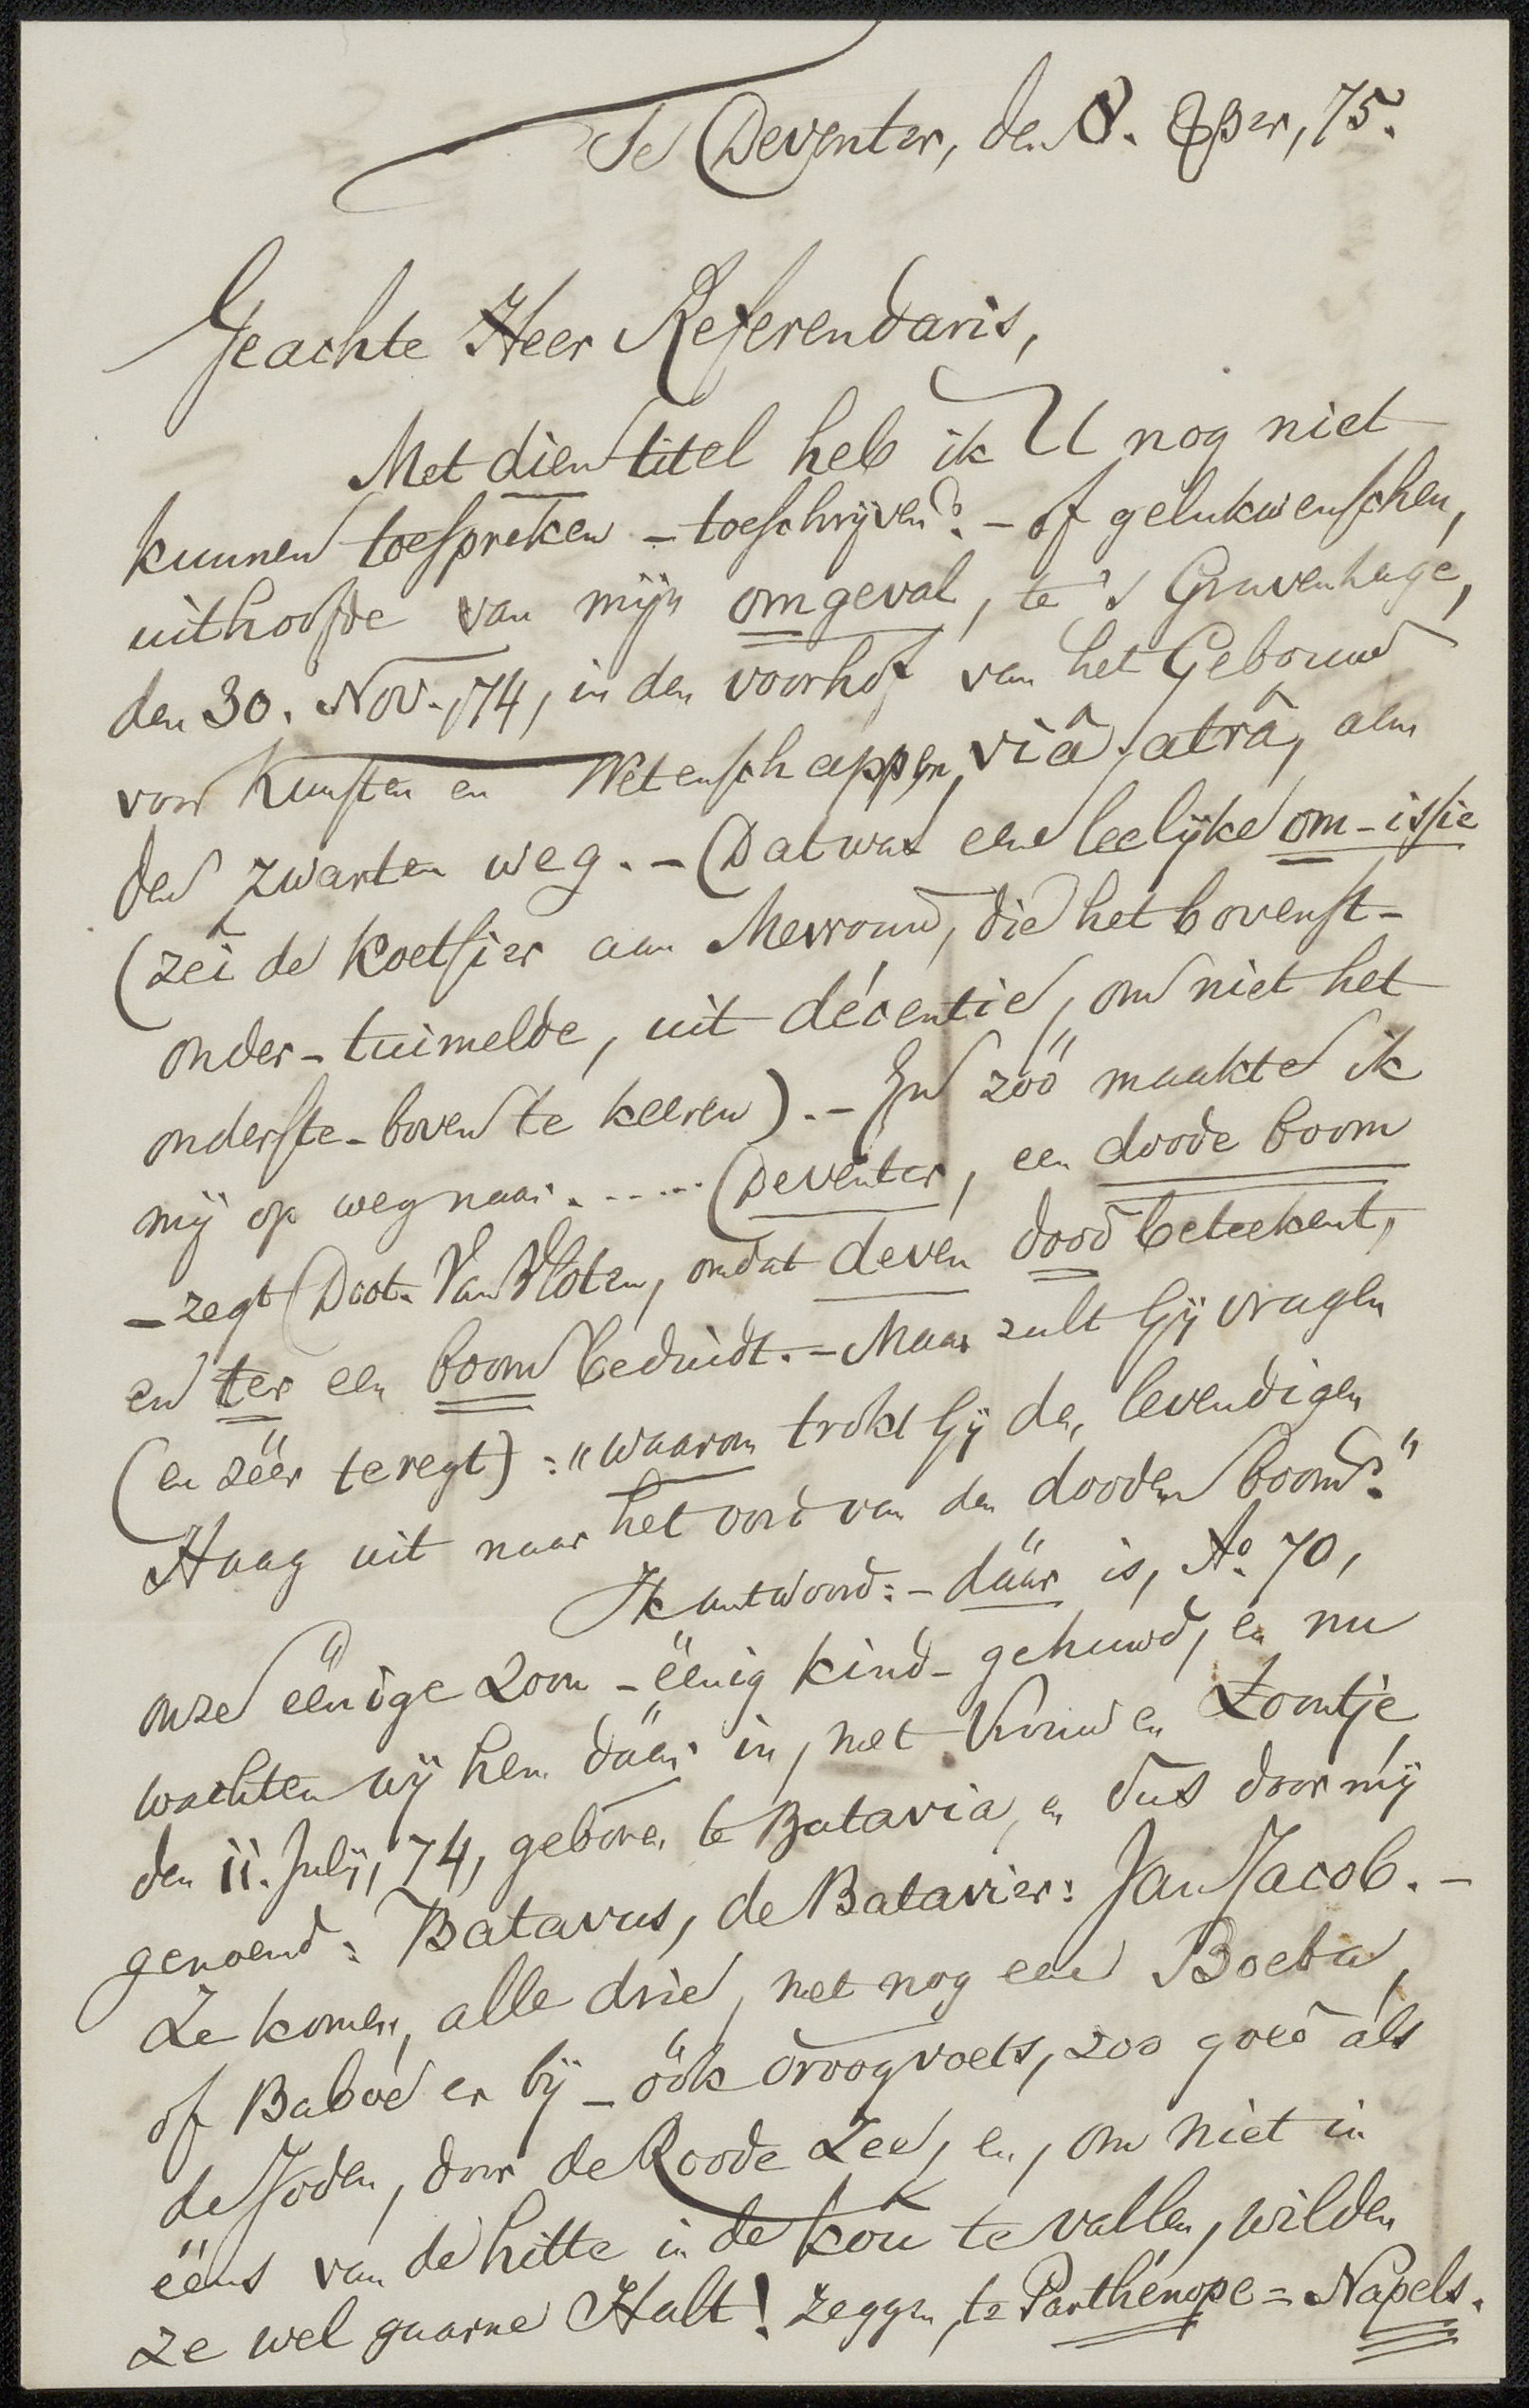 Te Deventer, den 8. 8ber, 75.
Geachte Heer Referendaris,
Met dien titel heb ik U nog niet
kunnen toespreken – toeschrijven? – of gelukwenschen,
uithoofde van mijn omgeval, te 's Gravenhage,
den 30. Nov., 74, in den voorhof van het Gebouw
voor Kunsten en Wetenschappen, viâ atrâ, alm
den zwarten weg. – (Dat was eene leelijke om-issie
(zei de Koetsier aan Mevrouw, die het bovenst-
onder-tuimelde, uit décentie, om niet het
onderste-boven te keeren). – En zóó maakte ik
mij op weg naar . . . . . . Deventer, een doode boom
– zegt Doct. Van Vloten, omdat deven dood beteekent,
en ter een boom beduidt. – Maar zult Gij vragen
(en zéér teregt): "waarom trokt Gij den levendigen
Haag uit naar het oord van den dooden boom?"
Ik antwoord: – däär is, Ao. 70,
onze éénige Zoon – éénig kind – gehuwd, en nu
wachten wij hem däär in, met Vrouw en Zoontje,
den 11. Julij, 74, geboren te Batavia, en dus door mij
genoemd: Batavus, de Batavier: Jan Jacob. –
Ze komen, alle drie, met nog eene Boeba
of Baboe er bij – öök droogvoets, zoo goed als
de Joden, door de Roode Zee, en, om niet in
ëëns van de hitte in de kou te vallen, wilden
ze wel gaarne Halt! zeggen, te Parthénope = Napels.